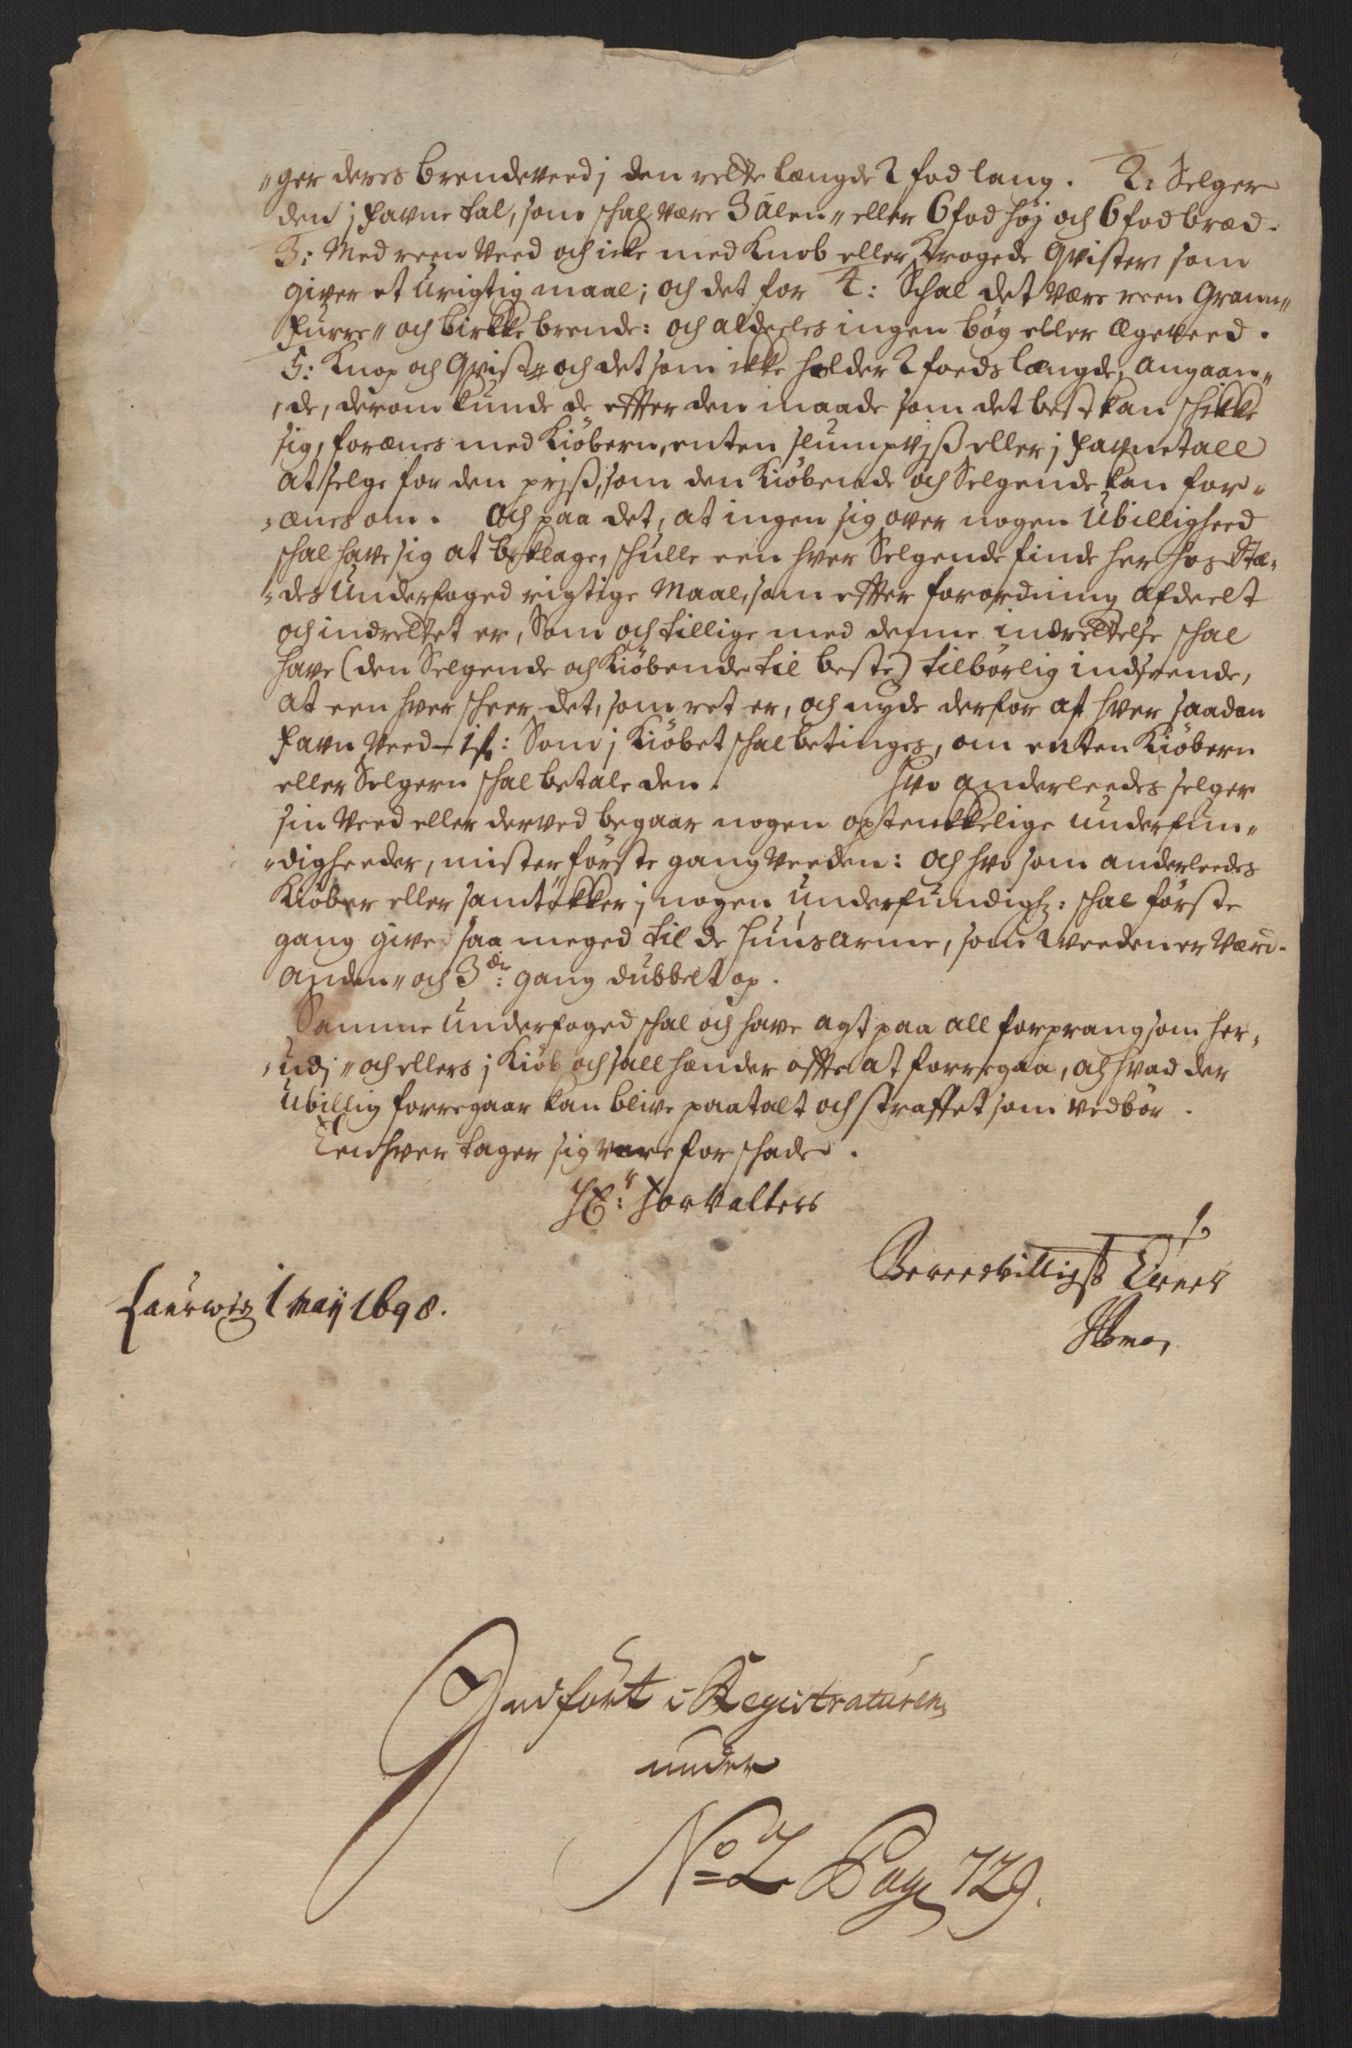 "ger deres brendeveed j den rette længde 2 fod lang. 2: Selger
den j favne tal, som schal være 3 alen" eller 6 fod høj och 6 fod bræd.
3: Med reen veed och icke med knob eller krogede qvister som
giver et urigtig maal; och det for 4: Schal det være reen Grann"
furre" och birkke brende: och aldeeles ingen bøg eller ægeveed.
5: Knop och qvist" och det som ikke holder 2 foeds længde, angaan"
"de, derom kunde de effter den maade som det best kan schikke
sig, forænes med kiøbern, enten slumpvjß eller j favnetall
at selge for den prjß, som den kiøbende och Selgende kan for"
"ænes om. Och paa det, at ingen sig over nogen ubilligheed
schal have sig at beklage, schulle een hver Selgende finde her hos Stæ"
"des Underfoged rigtige Maal, som effter forordning afdeelt
och indrettet er, Som och tillige med denne indrettelse schal
have (den Selgende och kiøbende til beste) tilbørlig indseende,
at een hver scheer det, som ret er, och nyde derfor af hver saadan
favn veed – 1 ß: Som j kiøbet schal betinges, om enten kiøbern
eller Selgern schal betale den. Hvo anderleedes selger
sin veed eller derved begaar nogen optenkkelige underfun"
"digheeder, mister første gang veeden: och hvo som anderleedes
kiøber eller samtøkker j nogen underfundigh: schal første
gang give saa meged til de huusarme, som veeden er værd.
Anden" och 3de: gang dubbelt op.
Samme Underfoged schal och have agt paa all forprang som her"
"udj" och ellers j kiøb och sall hænder offte at forregaa, at hvad der
ubillig forregaar kan blive paatalt och straffet som vedbør.
Eenhver tager sig vare for schade.
Hr: Forvalters
Bereedvilligst Tiener
Laurwig 1 maij 1698.
Indført i Registraturen
under
No 2 Pag 729.